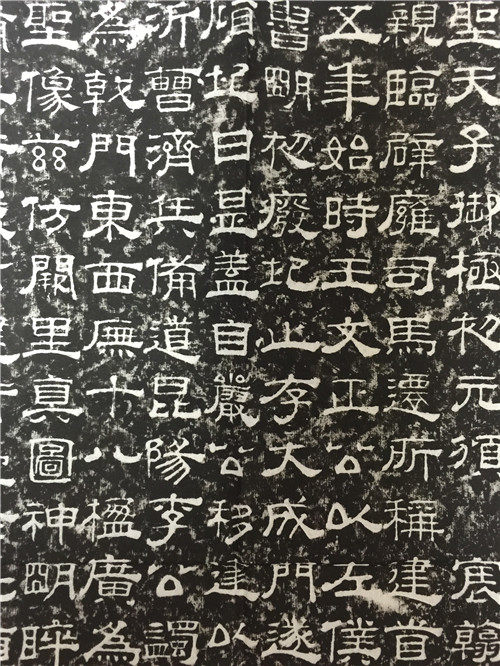 聖天子御極初元須宸翰
親臨辟廱司馬遷所稱建首
五年始時王文正公以左僕
書明初廢圮止存大成門遂
傾圮日甚蓋自嚴公移建以
沂曹濟兵備道昆陽李公謁
為戟門東西廡十八楹廣為
聖像茲仿闕里真圖神明睟